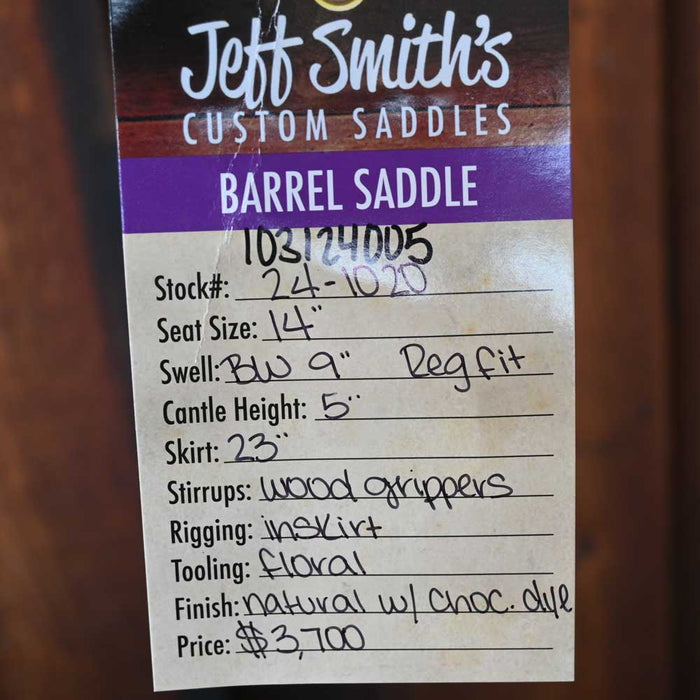 Jeff Smith's
CUSTOM SADDLES
BARREL SADDLE
103124005
Stock#: 24-1020
Seat Size: 14"
Swell: BW 9" Reg fit
Cantle Height: 5"
Skirt: 23"
Stirrups: wood grippers
Rigging: inskirt
Tooling: floral
Finish: natural w/ choc. dye
Price: $3,700